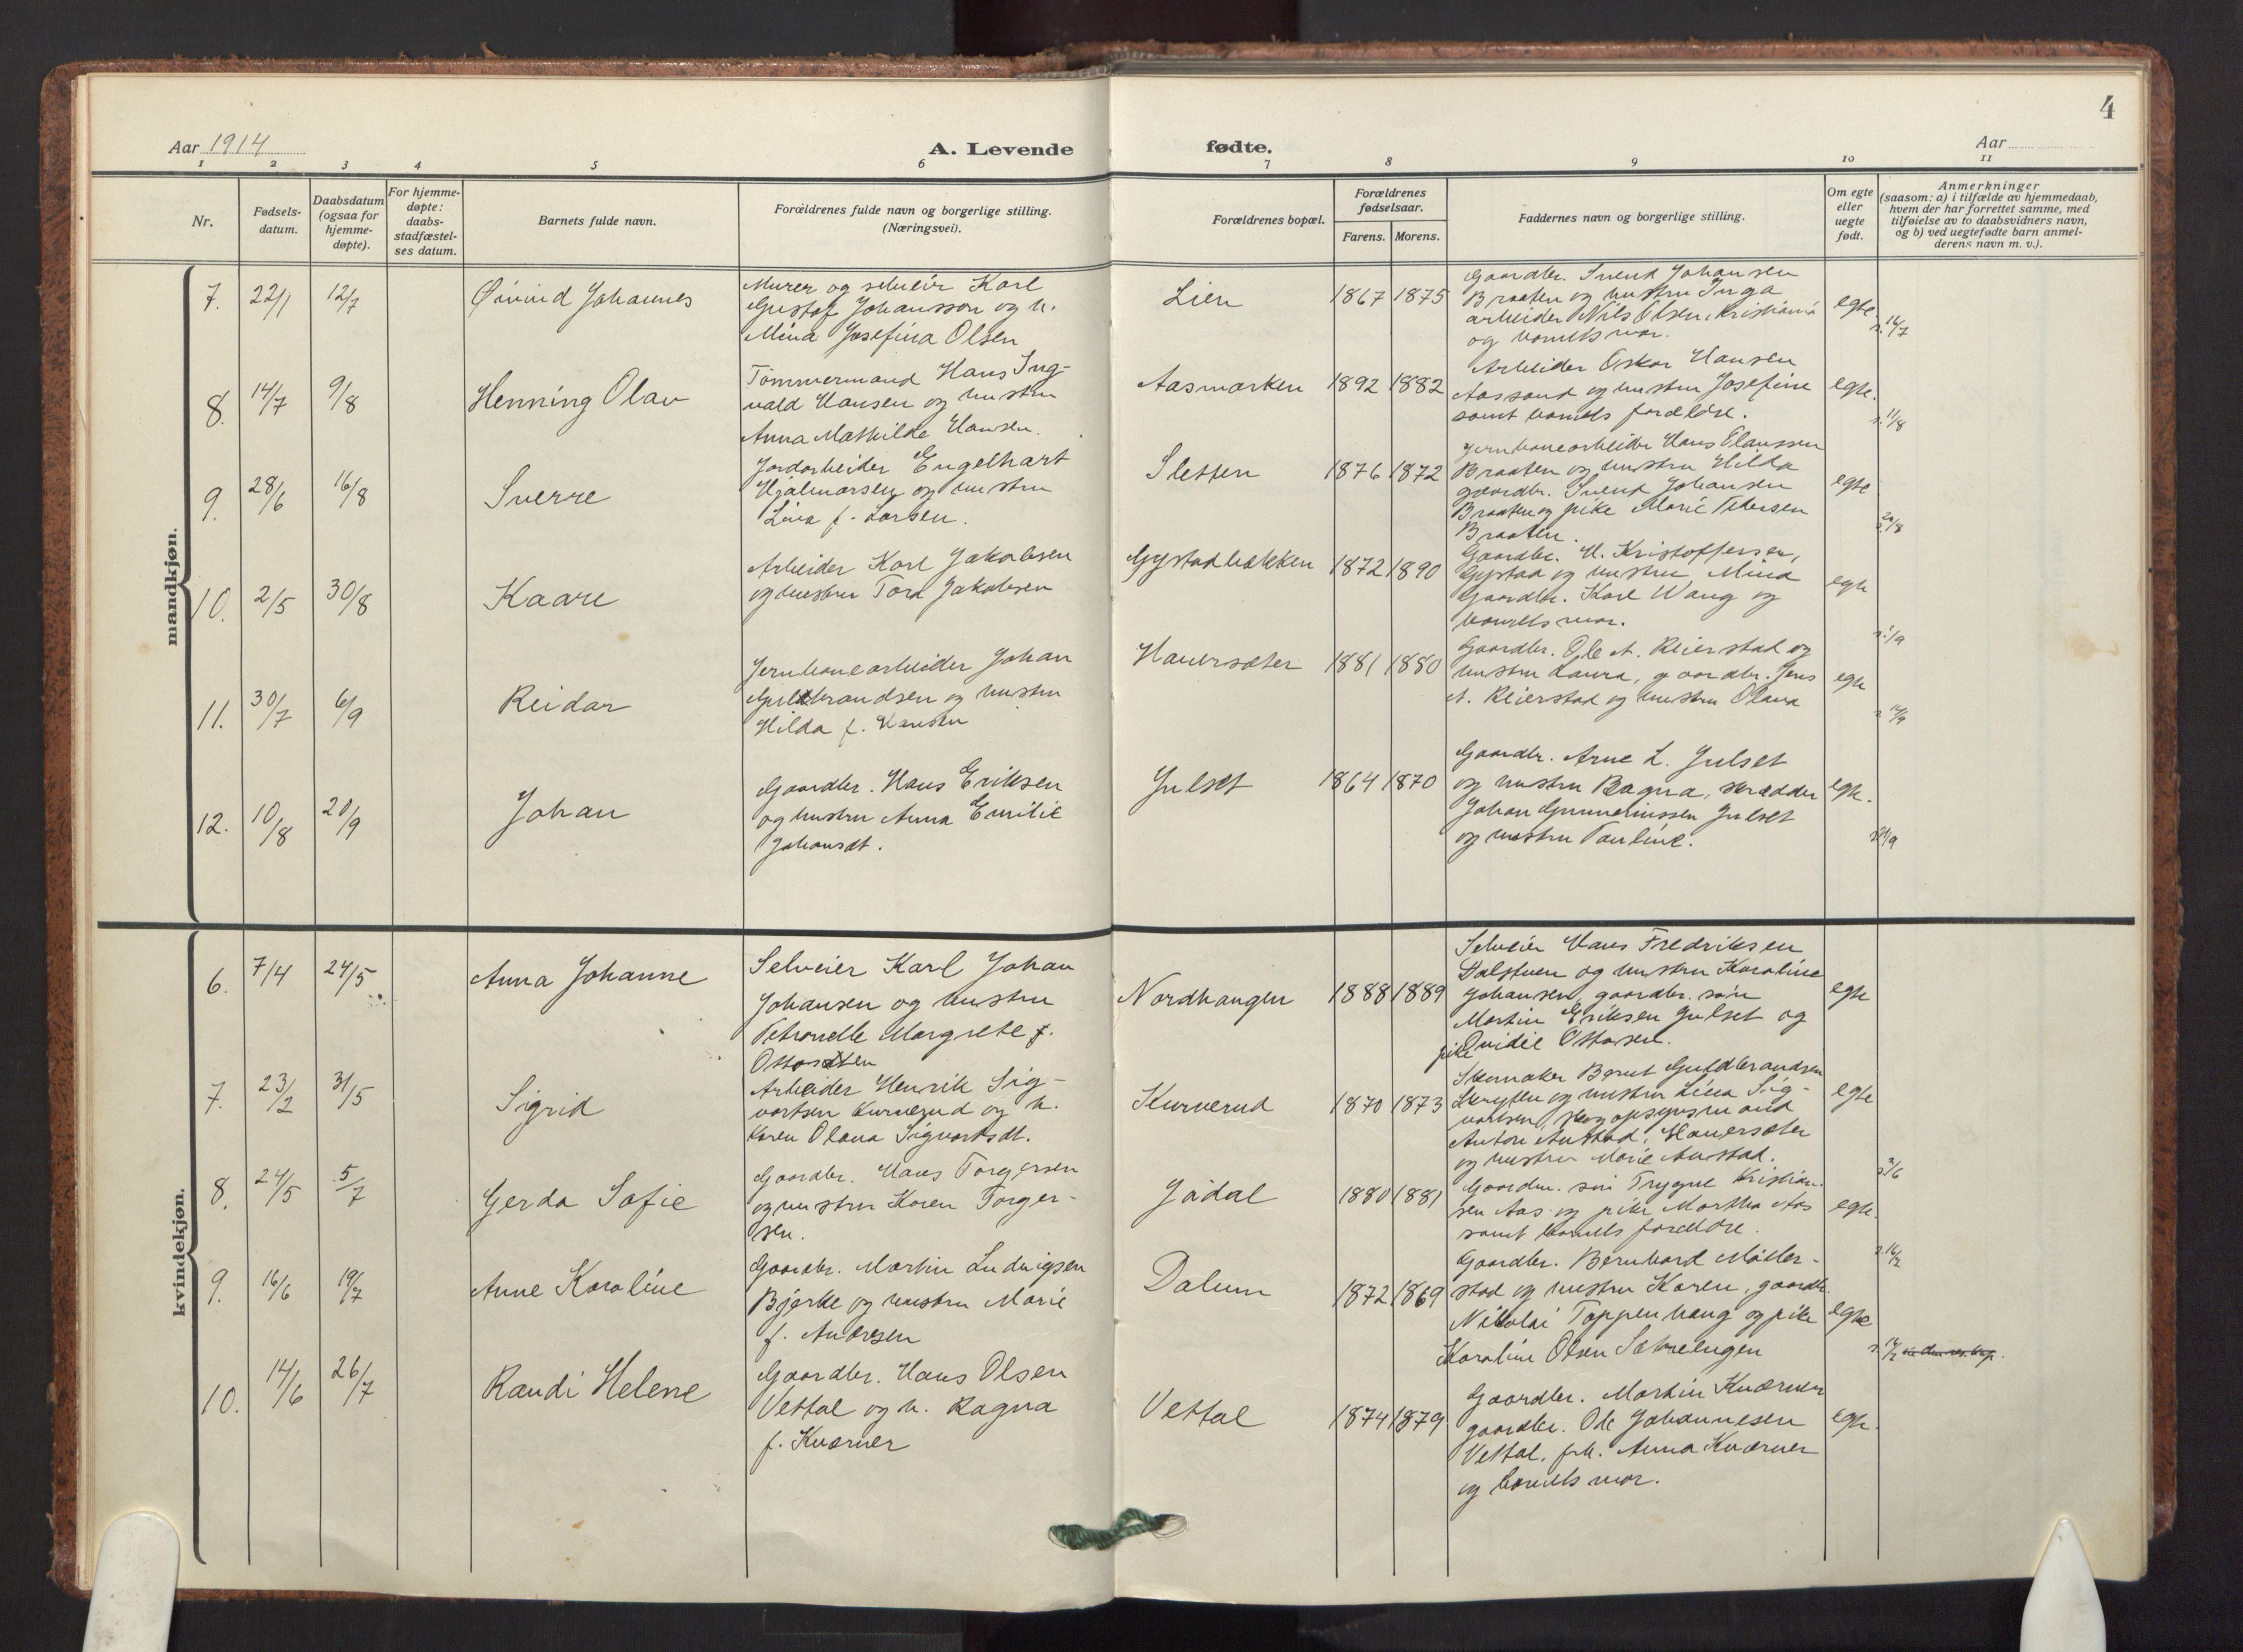 4
Aar 1914
A. Levende
fødte.
Aar
1 2 3 4 5 6 7 8 9 10 11
Nr.
Fødsels-
datum.
Daabsdatum
(ogsaa for
hjemme-
døpte).
For hjemme-
døpte:
daabs-
stadfæstel-
ses datum.
Barnets fulde navn.
Forældrenes fulde navn og borgerlige stilling.
(Næringsvei).
Forældrenes bopæl.
Forældrenes
fødselsaar.
Farens. Morens.
Faddernes navn og borgerlige stilling.
Om egte
eller
uegte
født.
Anmerkninger
(saasom: a) i tilfælde av hjemmedaab,
hvem der har forrettet samme, med
tilføielse av to daabsvidners navn,
og b) ved uegtefødte barn anmel-
derens navn m. v.).
mandkjøn.
7. 22/1 12/7 Øivind Johannes
Murer og selveier Karl
Gustaf Johansson og h.
Mina Josefina Olsen
Lien 1867 1875
Gaardbr. Svend Johansen
Braaten og hustru Inga
arbeider Nils Olsen, Kristiania
og barnets mor.
egte.
8. 14/7 9/8 Henning Olav
Tømmermand Hans Ing-
vald Hansen og hustru
Anna Mathilde Hansen.
Aasmarken 1892 1882
Arbeider Oskar Hansen
Aassand og hustru Josefine
samt barnets forældre.
egte.
11/8
9. 28/6 16/8 Sverre
Jordarbeider Engelhart
Hjalmarsen og hustru
Lina f. Larsen.
Sletten 1876 1872
Jernbanearbeider Hans Claussen
Braaten og hustru Hilda
gaardbr. Svend Johansen
Braaten og pike Marie Petersen
Braaten.
egte
20/8
10. 2/5 30/8 Kaare
Arbeider Karl Jakobsen
og hustru Tora Jakobsen
Gystadbakken 1872 1890
Gaardbr. H. Kristoffersen,
Gystad og hustru Mina
Gaardbr. Karl Wang og
barnets mor.
egte
1/9
11. 30/7 6/9 Reidar
Jernbanearbeider Johan
Guldbrandsen og hustru
Hilda f. Hansen
Hauersæter 1881 1880
Gaardbr. Ole A. Reierstad og
hustru Laura, gaardbr. Jens
A. Reierstad og hustru Olava
egte
12. 10/8 20/9 Johan
Gaardbr. Hans Eriksen
og hustru Anna Emilie
Johansdt.
Julset 1864 1870
Gaardbr. Arne L. Julset
og hustru Ragna, skrædder
Johan Julset
og hustru Pauline.
egte.
kvindekjøn.
6. 7/4 24/5 Anna Johanne
Selveier Karl Johan
Johansen og hustru
Petronelle Margrete f.
Nordhaugen 1888 1889
Selveier Hans Fredriksen
Dalstuen og hustru Karoline
Johansen, gaardbr. søn
Martin Eriksen Julset og
pike Ovidie Ottosen.
egte
7. 23/2 31/5 Sigrid
Arbeider Henrik Sig-
vartsen Kurverud og h.
Karen Olava Sigvartsdt.
Kurverud 1870 1873
Skomaker Bernt Guldbrandsen
og hustru Lina Sig-
vartsen, skogopsynsmand
Anton Austad, Hauersæter
og hustru Marie Austad.
egte
3/6
8. 24/5 5/7 Gerda Sofie
Gaardbr. Hans Torgersen
og hustru Karen Torger-
sen.
Jødal 1880 1881
Gaardm. søn Trygve Kristian-
sen Aas og pike Martha Aas
samt barnets forældre.
egte.
9. 16/6 19/7 Anne Karoline
Gaardbr. Martin Ludvigsen
Bjerke og hustru Marie
f. Andersen
Dalum 1872 1869
Gaardbr. Bernhard Møller-
stad og hustru Karen, gaardbr.
Nikolai Toppenhaug og pike
Karoline Olsen
egte
10. 14/6 26/7 Randi Helene
Gaardbr. Hans Olsen
Vettal og h. Ragna
f. Kværner
Vettal 1874 1879
Gaardbr. Martin Kværner
gaardbr. Ole Johannesen
Vettal, frk. Anna Kværner
og barnets mor.
egte.